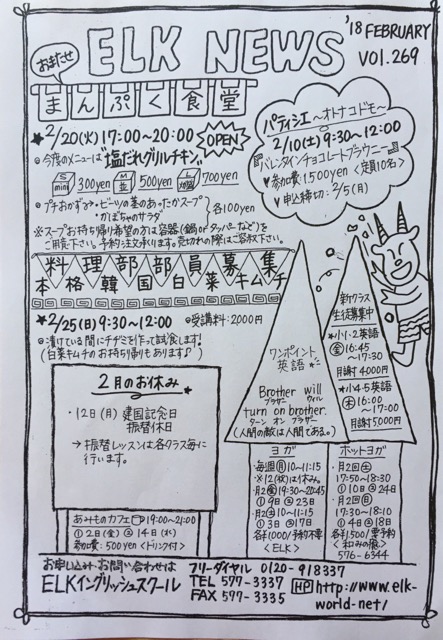 おまたせ
ELK NEWS
'18 FEBRUARY
VOl.269
まんぷく食堂
★2/20(火)17:00~20:00 OPEN
◎今度のメニューは"塩だれグリルチキン"
S mini 300yen M 並 500yen L 700yen
◎プチおかず→・ビーツの葉のあったかスープ
・かぼちゃのサラダ
各100yen
※スープお持ち帰り希望の方は容器(鍋orタッパーなど)を
ご用意下さい。予約注文承ります。売切れの際はご容赦下さい。
パティシエ ~オトナコドモ~
2/10(土)9:30~12:00
『バレンタインチョコレートブラウニー』
♥参加費1500yen<定員10名>
♥申込締切:2/5(月)
料理部部員募集
本格韓国白菜キムチ
★2/25(日)9:30~12:00 ◎受講料:2000円
◎漬けている間にチヂミを作って試食します!
(白菜キムチのお持ち帰りもあります♪)
新クラス
生徒募集中
★小1・2英語
金16:45
~17:30
月謝4000円
★小4・5英語
木16:00
~17:00
月謝5000円
ワンポイント
英語
Brother will
ブラザー ウィル
turn on brother.
ターン オン ブラザー
(人間の敵は人間である。)
2月のお休み
・12日(月)建国記念日
振替休日
→振替レッスンは各クラス毎に
行います。
あみものカフェ 19:00~21:00
①2日(金)②14日(水)
参加費:500yen<ドリンク付>
ヨガ
・毎週月10~11:15
※12(祝)は休み。
・月2金19:30~20:45
①9日②23日
・月2土10~11:15
①3日②17日
各¥1000/予約不要
<ELK>
ホットヨガ
・月2回土
17:50~18:30
①10日②24日
・月2回日
17:30~18:10
①4日②18日
各¥1500/要予約
<和みの風>
576-6344
お申し込み・お問い合わせは
ELKイングリッシュスクール
フリーダイヤル 0120-918337
TEL 577-3337
FAX 577-3335
HP http://www.elk-
world-net/